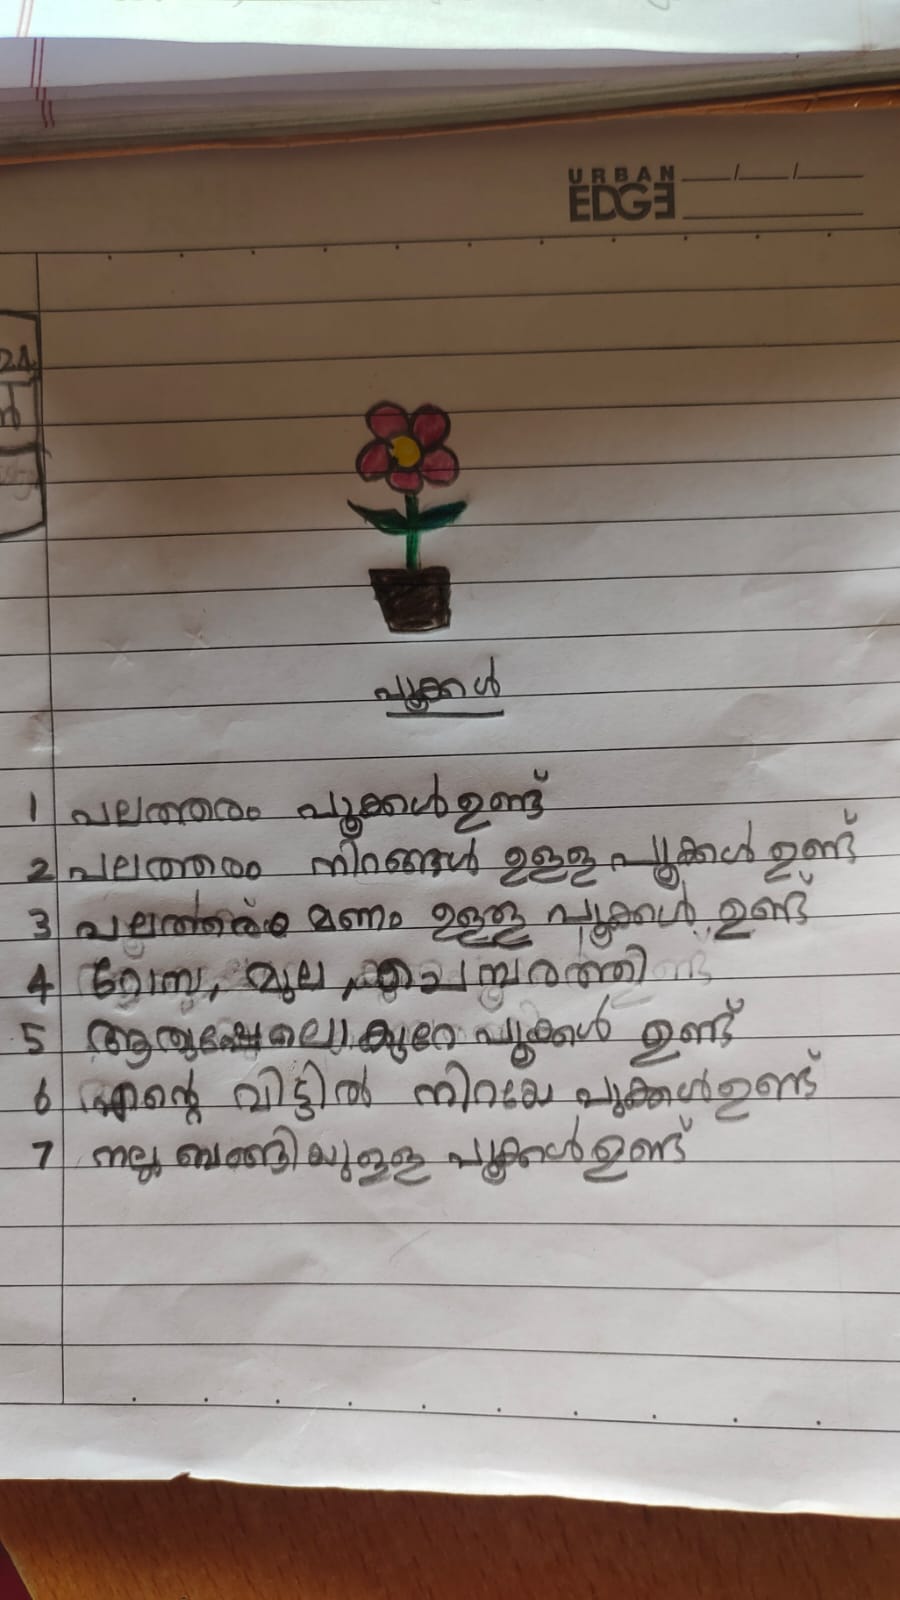 URBAN
EDGE
പൂക്കൾ
1 പലതരം പൂക്കൾ ഉണ്ട്
2 പലതരം നിറങ്ങൾ ഉള്ള പൂക്കൾ ഉണ്ട്
3 പലതരം മണം ഉള്ള പൂക്കൾ ഉണ്ട്
4 റോസ, മുല്ല, ചെമ്പരത്തി
5 കുറേ പൂക്കൾ ഉണ്ട്
6 എന്റെ വിട്ടിൽ നിറയേ പുക്കൾ ഉണ്ട്
7 നല്ല ബങ്ങിയുള്ള പൂക്കൾ ഉണ്ട്